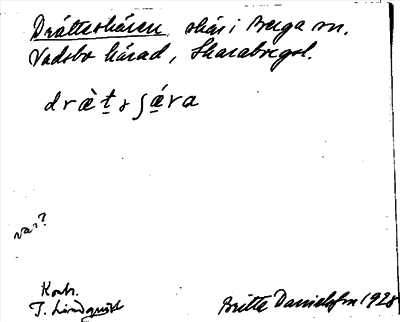 Drätteskären, skär i Berga sn.
Vadsbo härad, Skaraborgsl.
dræ̀ṯɘʃǽ̱ra
var?
Kontr.
T. Lindquist
Britte Danielson 1928